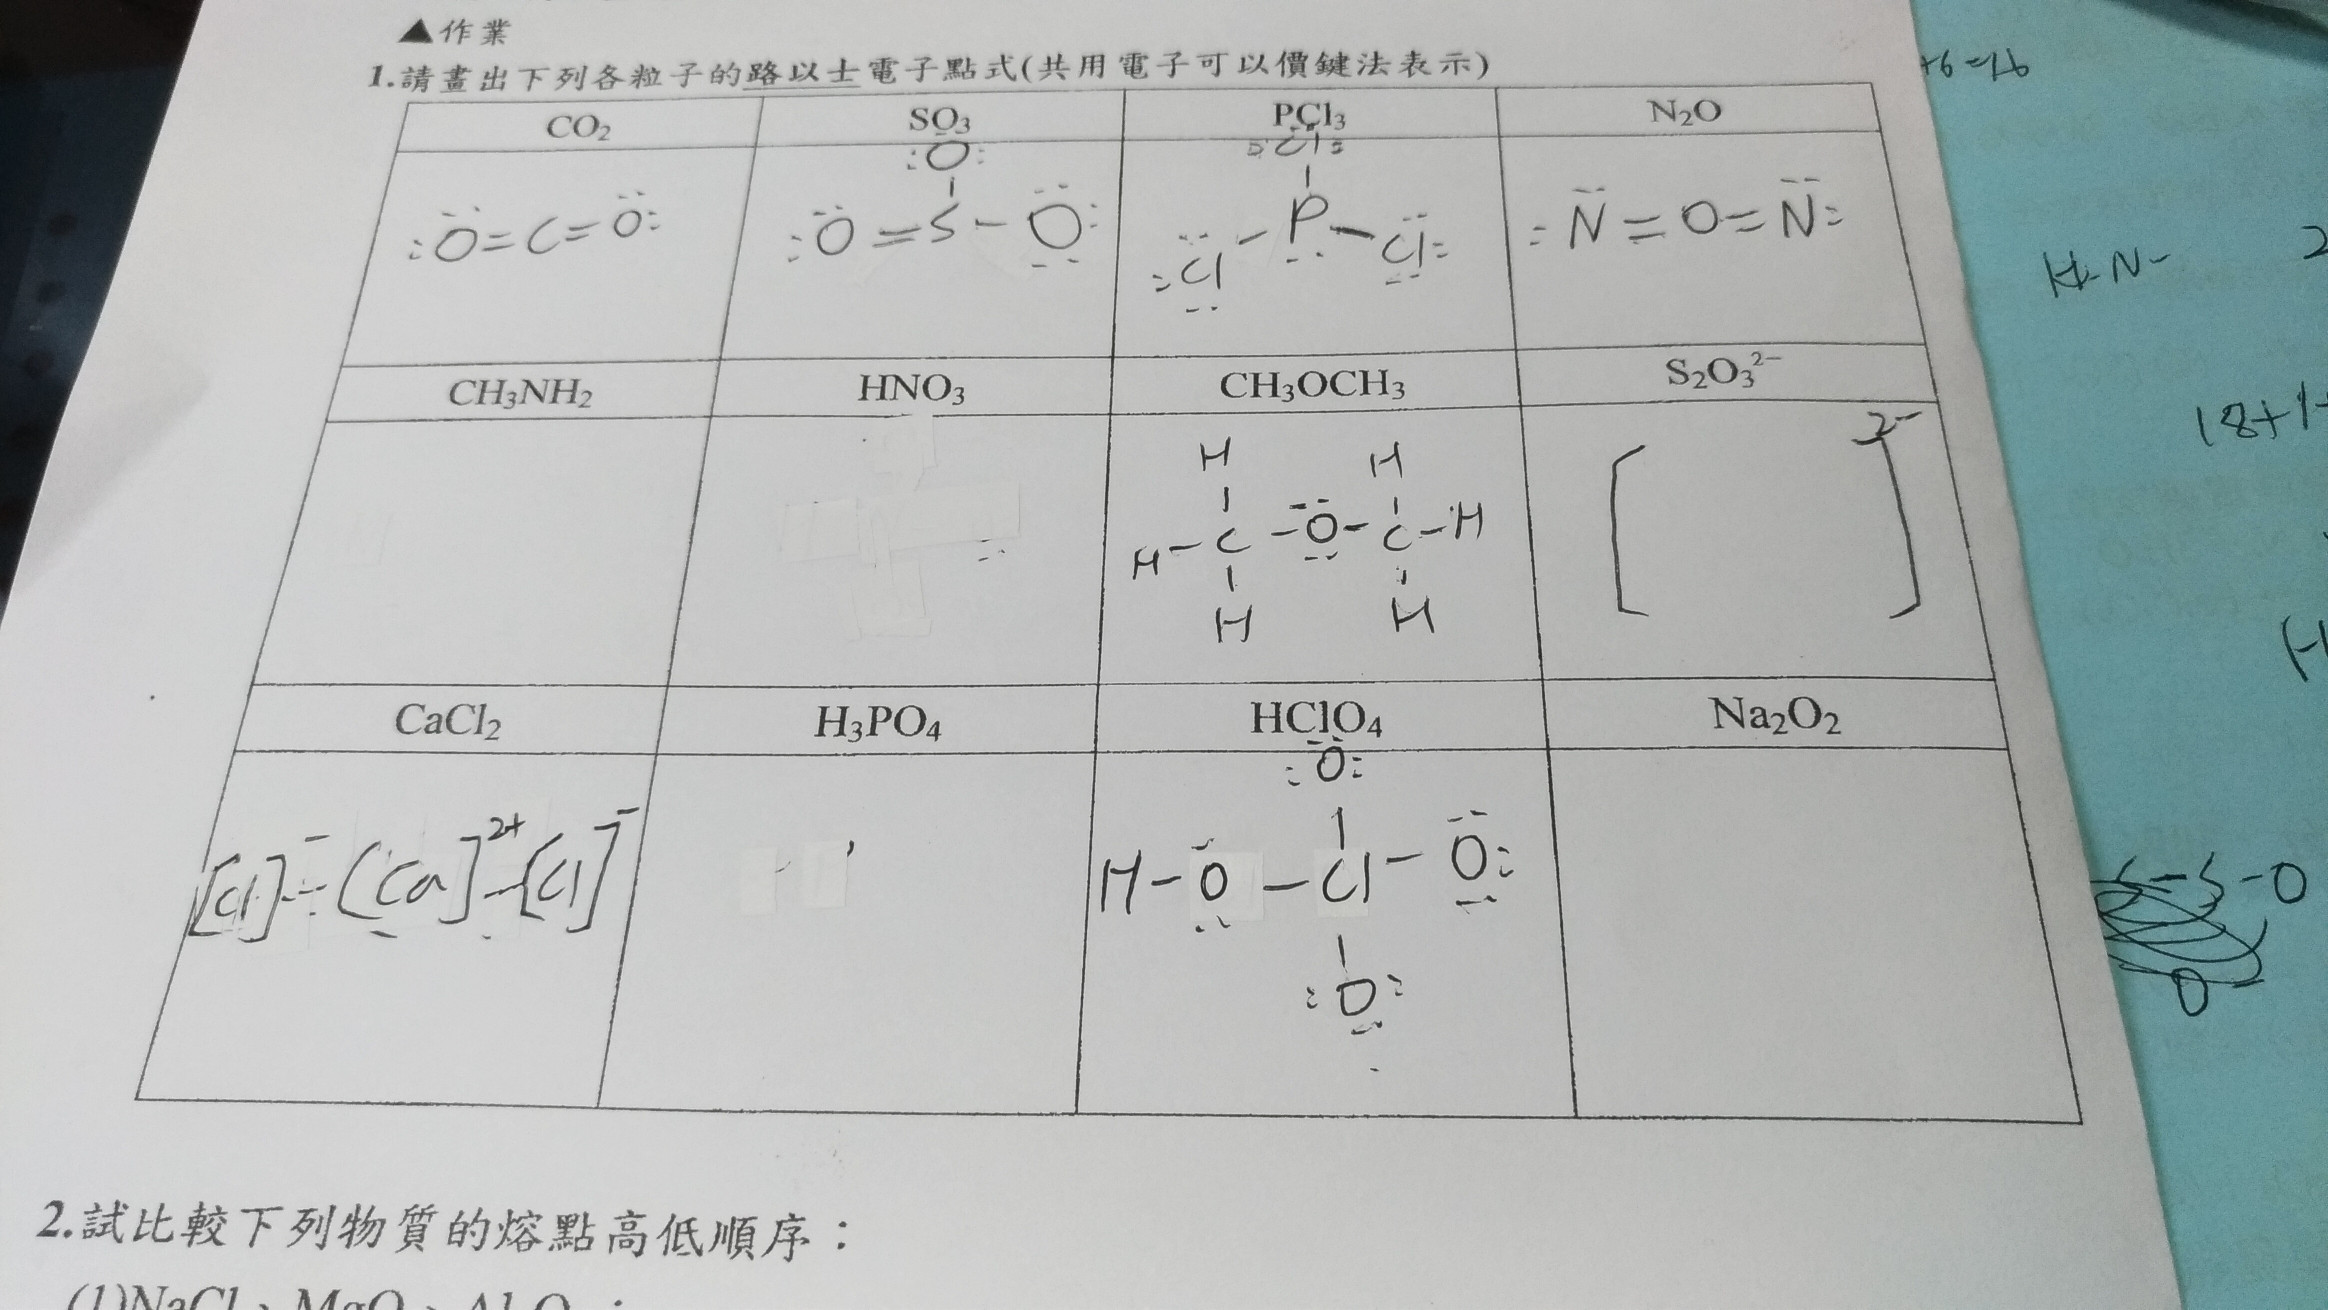 ▲作業
1.請畫出下列各粒子的路以士電子點式(共用電子可以價鍵法表示)
CO₂ SO₃ PCl₃ N₂O
:Ö=C=Ö:
:O:
:Ö=S-Ö:
:Cl:
:Cl-P-Cl:
:N̈=O=N̈:
CH₃NH₂ HNO₃ CH₃OCH₃ S₂O₃²⁻
H H
H-C-O-C-H
H H
[ ]²⁻
CaCl₂ H₃PO₄ HClO₄ Na₂O₂
[Cl]⁻-[Ca]²⁺-[Cl]⁻
:O:
H-O-Cl-O:
:O:
2.試比較下列物質的熔點高低順序：
(1)NaCl、MgO、Al₂O₃：
+6=26
H-N-
2
18+1+
S-S-O
O